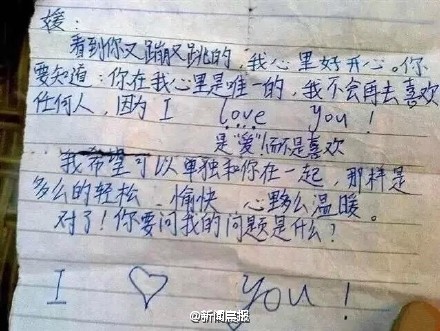 媛:
看到你又蹦又跳的，我心里好开心。你
要知道：你在我心里是唯一的，我不会再去喜欢
任何人，因为 I love you!
是“爱”而不是喜欢
我希望可以单独和你在一起，那样是
多么的轻松、愉快 心多么温暖。
对了！你要问我的问题是什么？
I ♡ you!
@新闻晨报